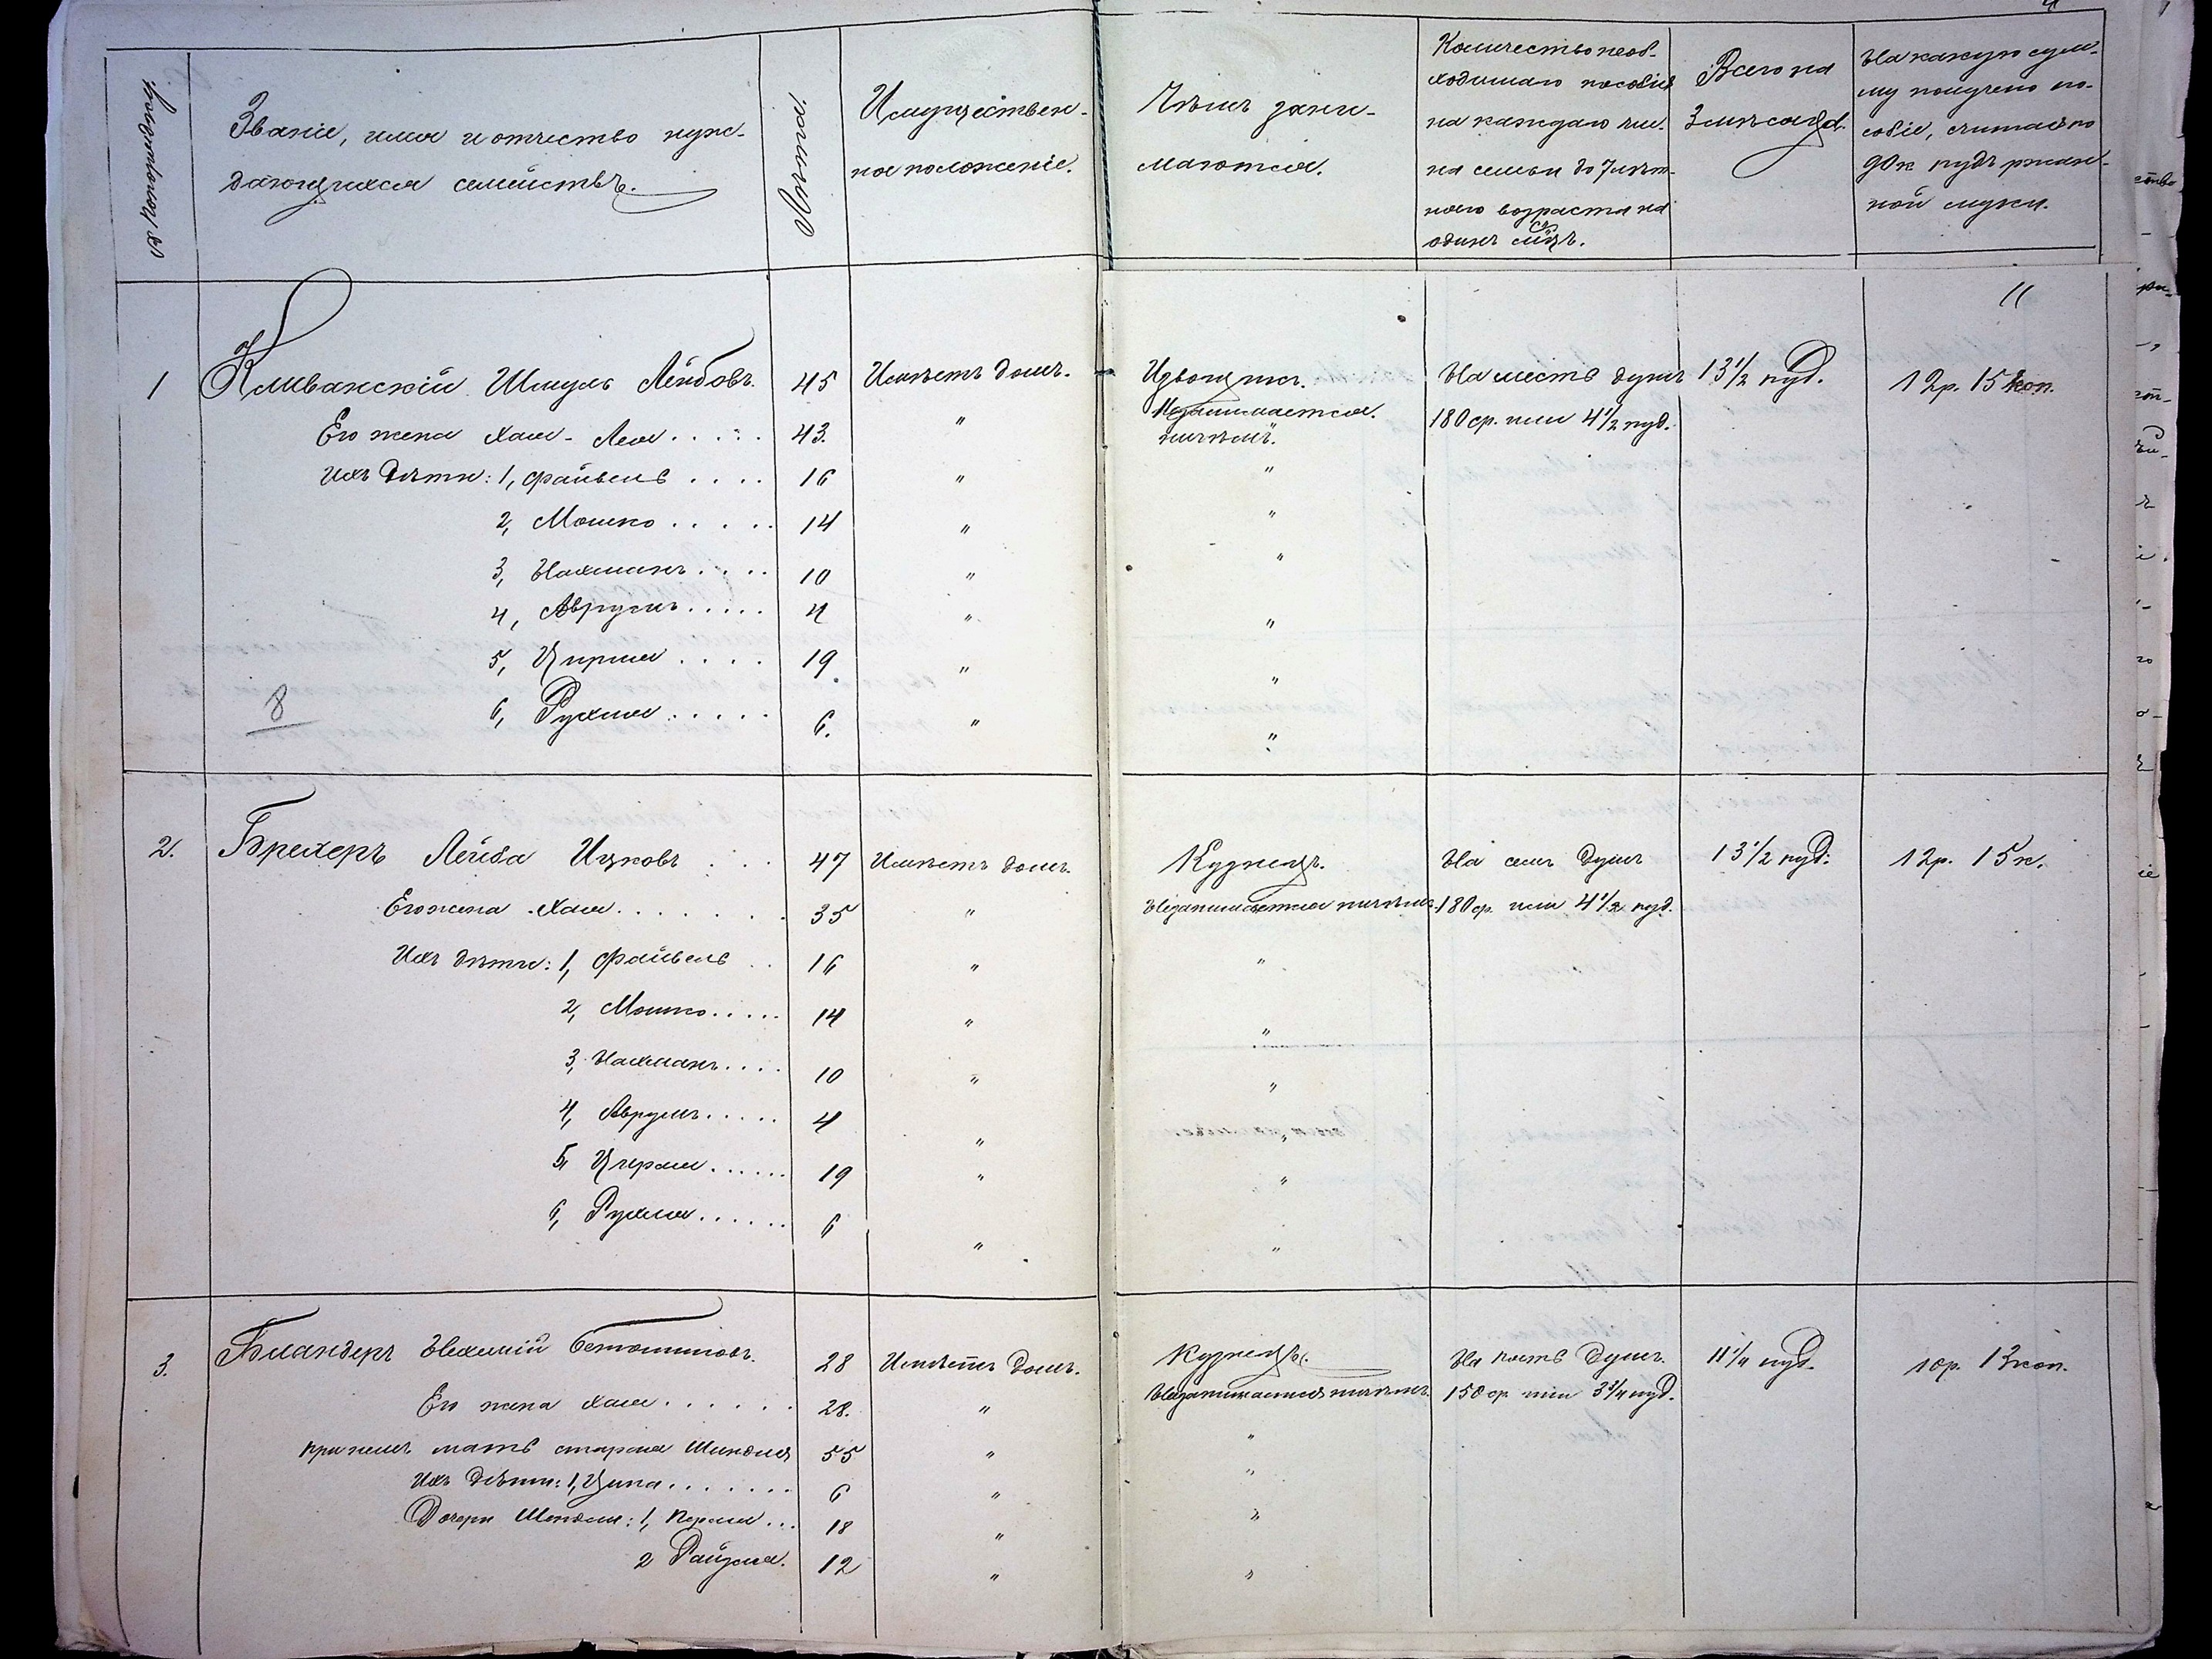 № по порядку.
Званіе, имя и отчество нуж-
дающихся семействъ.
Лѣта.
Имуществен-
ное положеніе.
Чѣмъ зани-
маются.
Количество необ-
ходимаго пособія
на каждаго чле-
на семьи до 7 лѣт-
няго возраста на
одинъ мѣсяцъ.
Всего на
3 мѣсяца.
На какую сум-
му получено по-
собіе, считая по
90 к пудъ ржан-
ной муки.
11
1 Кливанскій Шмуль Лейбовъ. 45 Имѣетъ домъ. Извощикъ. На шесть душъ 13 1/2 пуд. 12 р. 15 коп.
Его жена Хая-Лея ..... 43. " Незанимается 180 ф. или 4 1/2 пуд.
ничѣмъ.
Ихъ дѣти: 1, Файвель .... 16 " "
2, Мошко ..... 14 " "
3, Нахманъ .... 10 " "
4, Аврумъ ..... 4 " "
5, Цирля .... 19 " "
8
6, Рухля ..... 6. " "
2. Брехеръ Лейба Ицковъ 47 Имѣетъ домъ. Кузнецъ. На семь душъ 13 1/2 пуд. 12 р. 15 к.
Его жена Хая ....... 35 " Незанимается ничѣмъ. 180 ф. или 4 1/2 пуд.
Ихъ дѣти: 1, Файвель .. 16 " "
2, Мошко ..... 14 " "
3, Нахманъ .... 10 " "
4, Аврумъ ..... 4 " "
5, Цирля ...... 19 " "
6, Рухля ...... 6 " "
3. Бландеръ Нехемій 28 Имѣетъ домъ. Кузнецъ. На пять душъ. 11 1/4 пуд. 10 р. 13 коп.
Его жена Хая ...... 28. " Незанимается ничѣмъ. 150 ф или 3 3/4 пуд.
При немъ мать старая Шиндля 55 " "
Ихъ дѣти: 1, Ципа ....... 6 " "
Дочери Шиндли: 1, Перля ... 18 " "
2 Райзля. 12 " "